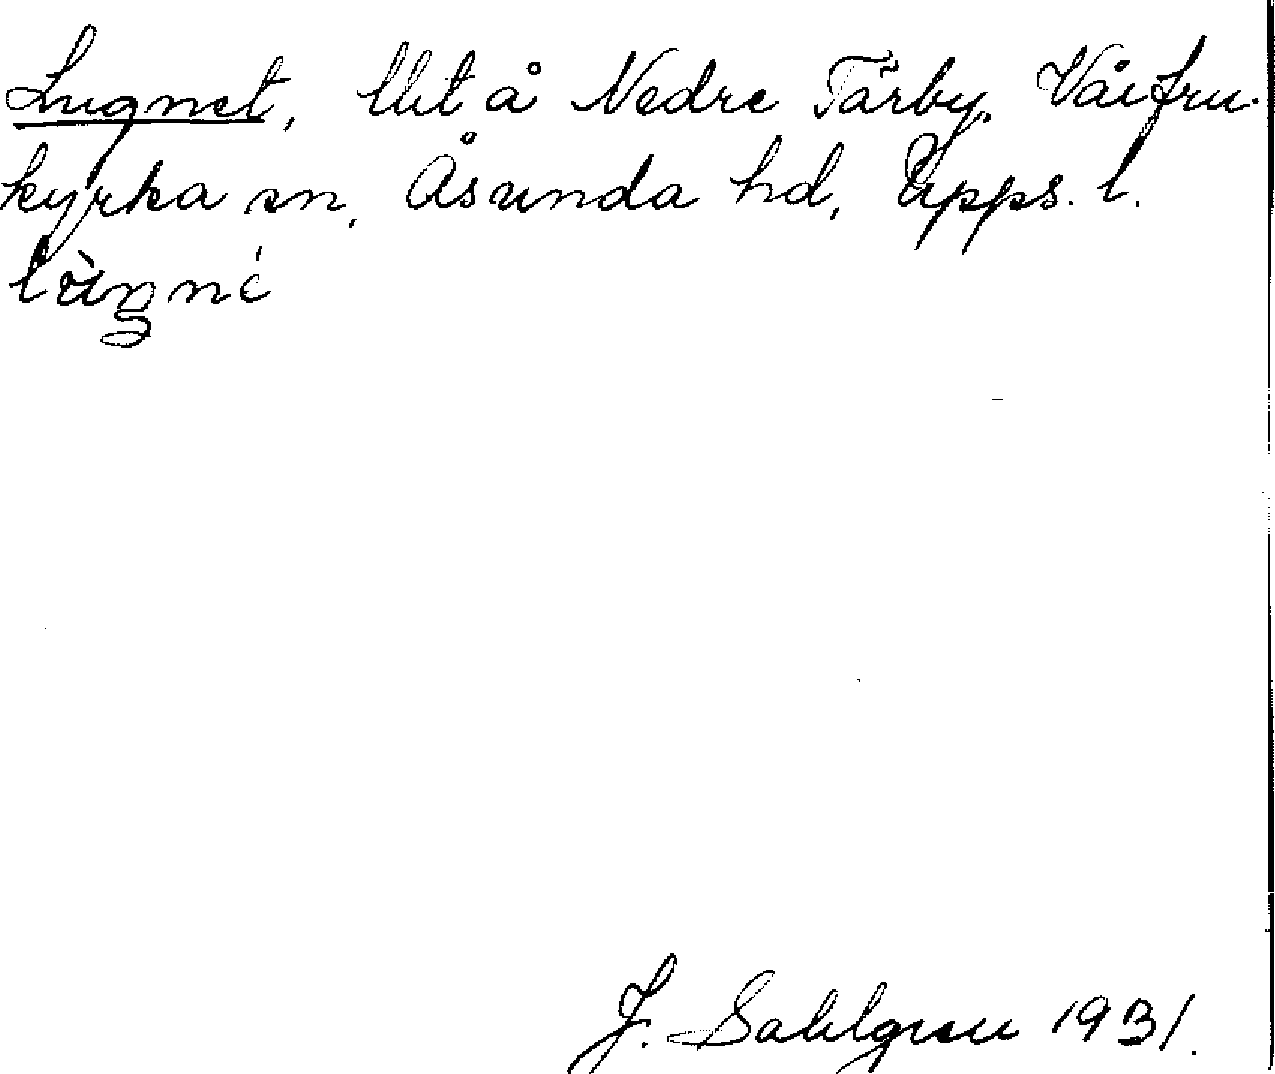 Lugnet, lht å Nedre Tärby, Vårfru-
kyrka sn, Åsunda hd, Upps. l.
J. Sahlgren 1931.